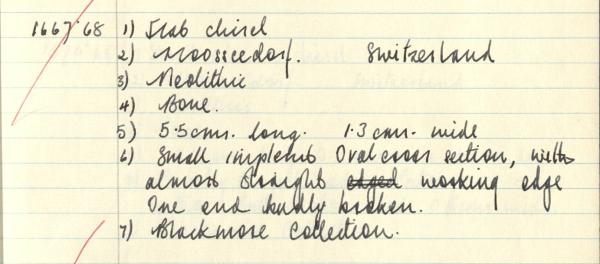 1667'68 1) Stab chisel
2) Moosseedorf. Switzerland
3) Neolithic
4) Bone.
5) 5.5cms. long. 1.3 cms. wide
6) Small implemt Oval cross section, with
almost straight edged working edge
One end badly broken.
7) Blackmore Collection.